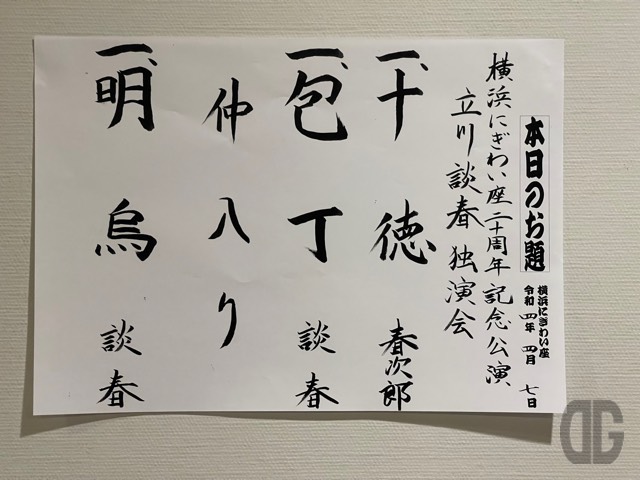 本日のお題
横浜にぎわい座
令和四年四月七日
横浜にぎわい座二十周年記念公演
立川談春独演会
一、十徳 春次郎
一、包丁 談春
仲入り
一、明烏 談春
DG